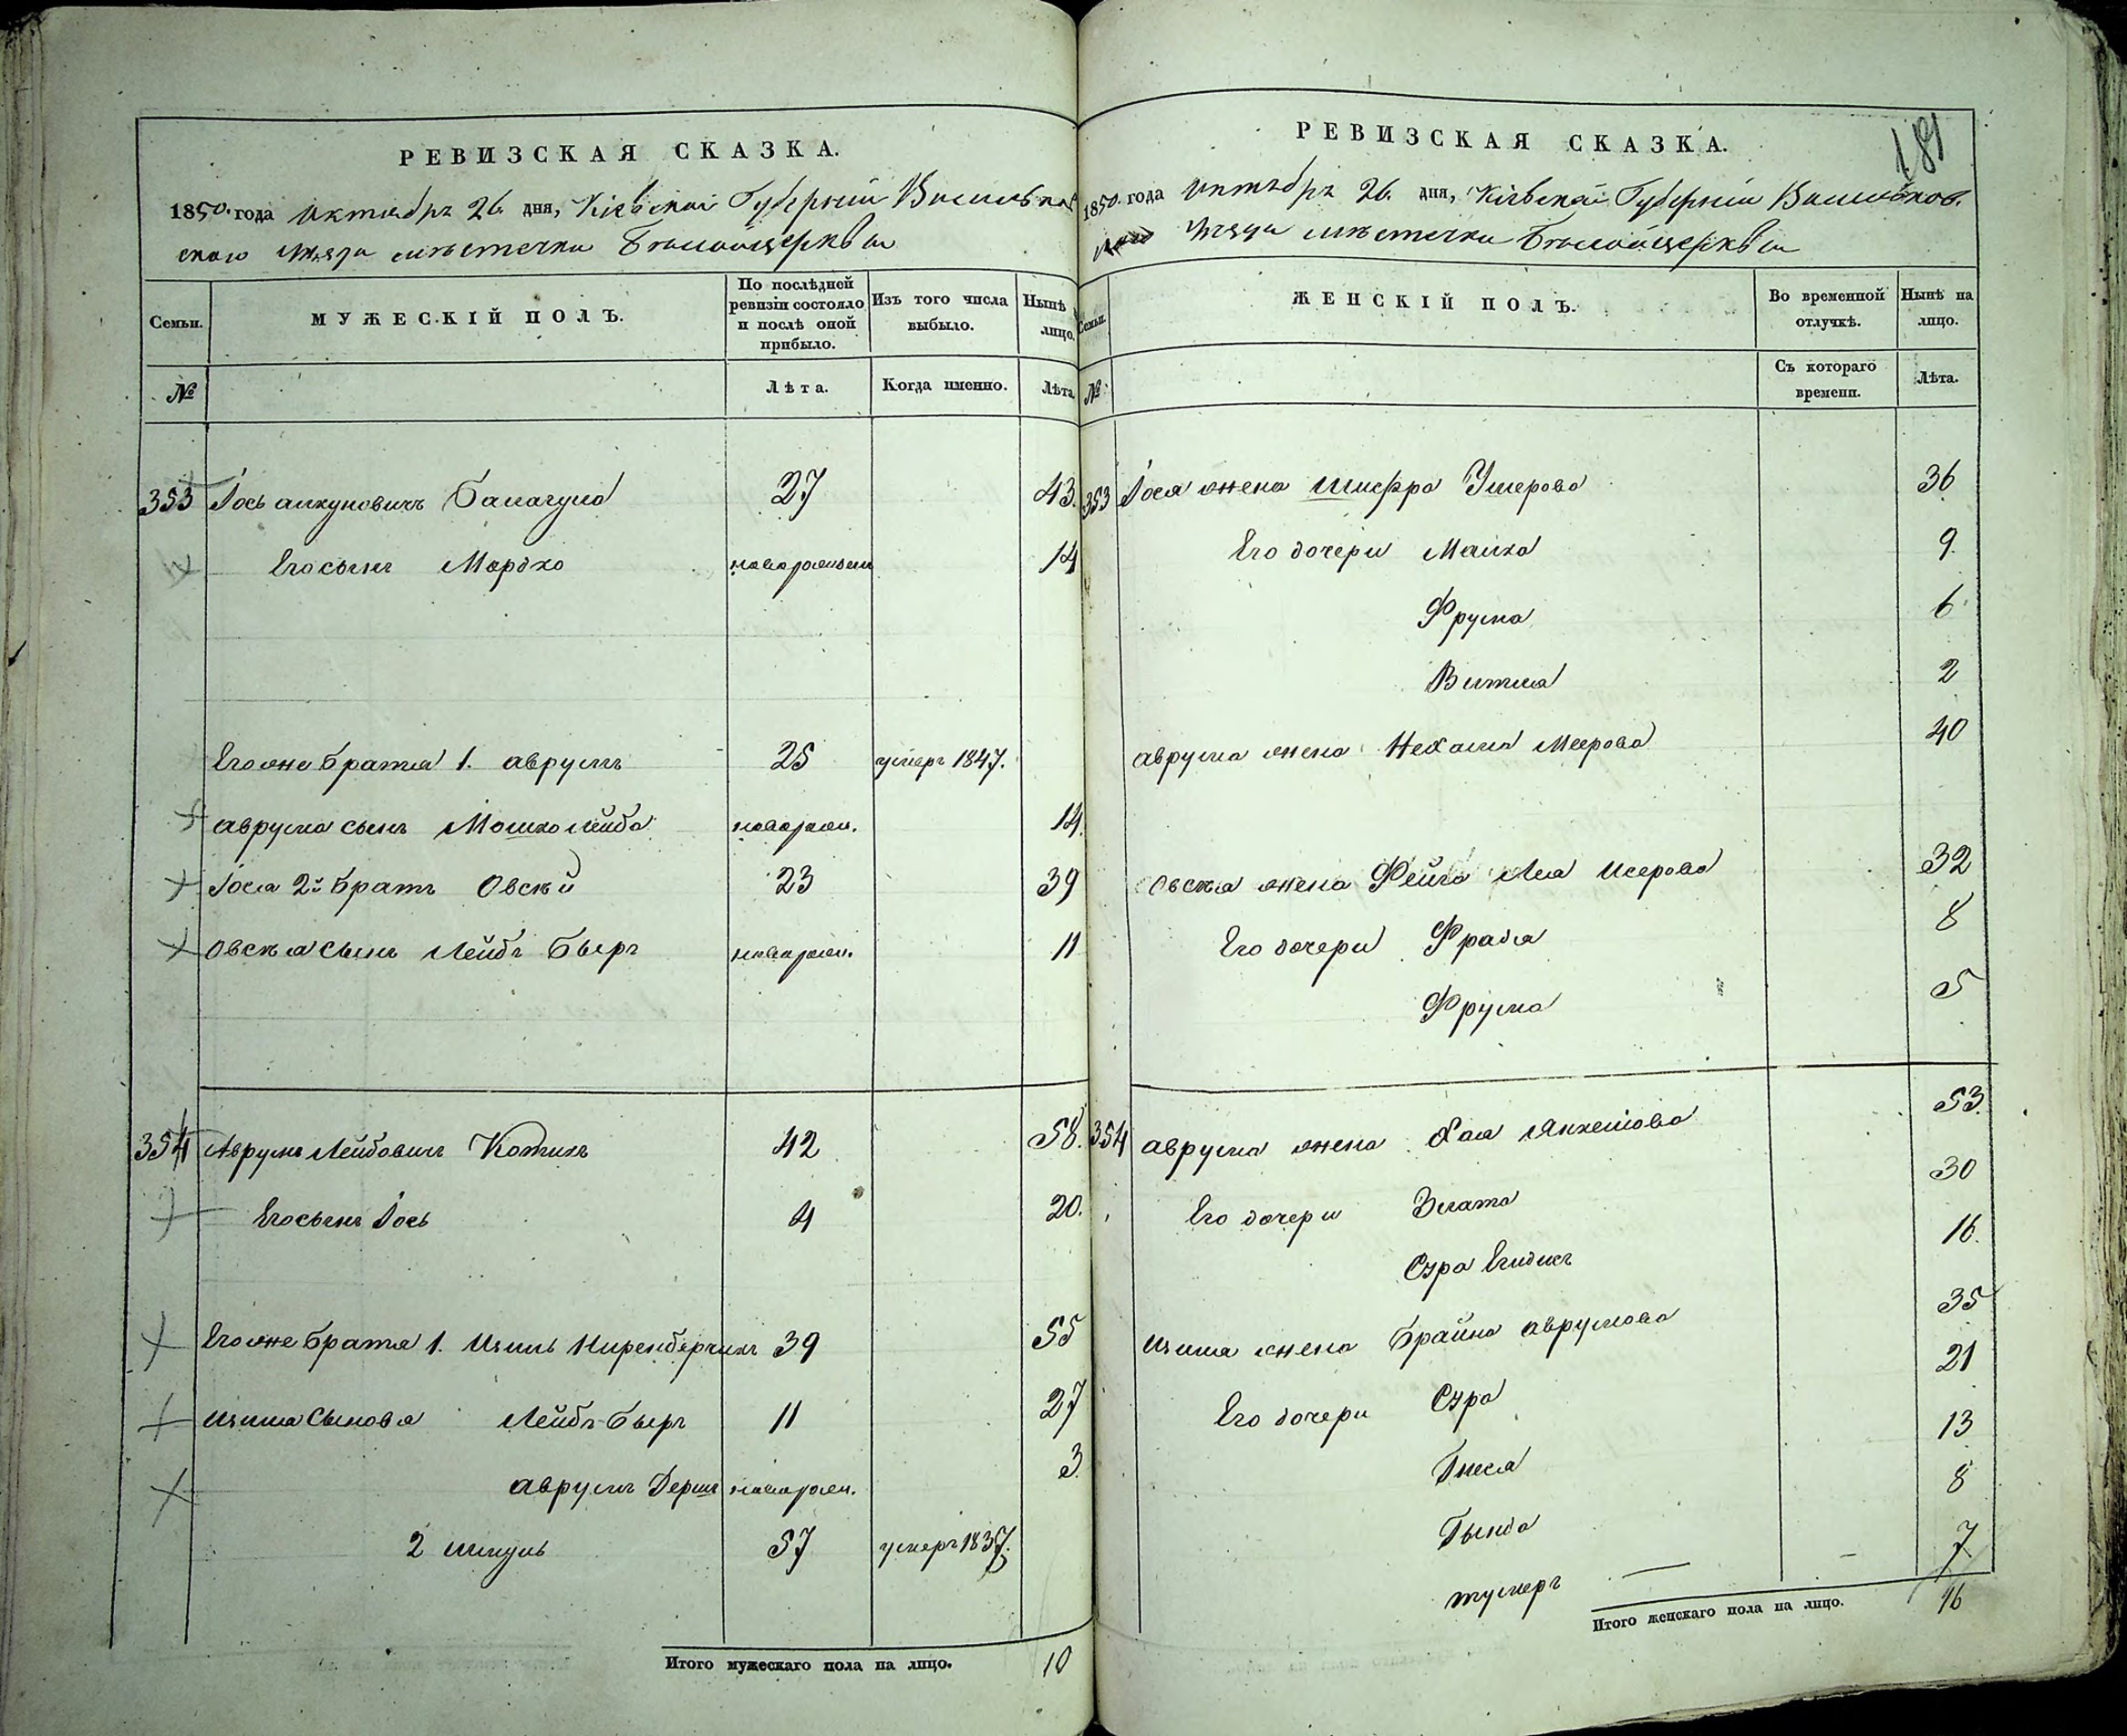 РЕВИЗСКАЯ СКАЗКА.
1850. года Октября 26. дня, Кіевской Губерніи Васильков
скаго уѣзда мѣстечка Бѣлойцеркви
Семьи.
МУЖЕСКІЙ ПОЛЪ.
По послѣдней ревизіи состояло и послѣ оной прибыло.
Изъ того числа выбыло.
Нынѣ на лицо.
№
Лѣта.
Когда именно.
Лѣта.
353 Іось Анкуновичъ Балагула 27 43.
Его сынъ Мордко новорожден 14
Его же братья 1. Аврумъ 25 умеръ 1847.
Аврума сынъ Мошко Лейба новорож. 14.
Іося 2й братъ Овсѣй 23 39
Овсѣя сынъ Лейбъ Бьеръ новорож. 11
354 Аврумъ Лейбовичъ Котикъ 42 58.
Его сынъ Іось 4 20.
Его же братья 1. Изииль Ниренберчикъ 39 55
сынова Лейбъ Бьеръ 11 27
Аврумъ Герш новорож. 3.
2 Шмуль 57 умеръ 1837.
Итого мужескаго пола на лицо. 10
РЕВИЗСКАЯ СКАЗКА.
181
1850. года Октября 26. дня, Кіевской Губерніи Васильков.
скаго уѣзда мѣстечка Бѣлойцеркви
Семьи.
ЖЕНСКІЙ ПОЛЪ.
Во временной отлучкѣ.
Нынѣ на лицо.
№
Съ котораго времени.
Лѣта.
353 Іося жена Шифра Умерова 36
Его дочери Малка 9.
Фрума 6.
Витля 2
Аврума жена Нехама Меерова 40
Овсѣя жена Фейга Лея Исерова 32
Его дочери Фрадя 8
Фрума 5
354 Аврума жена Хая Янкелова 53.
Его дочери Злата 30
Сура 16.
жена Брайна Аврумова 35
Его дочери Сура 21
Гнеся 13
Гында 8
7
Итого женскаго пола на лицо. 16